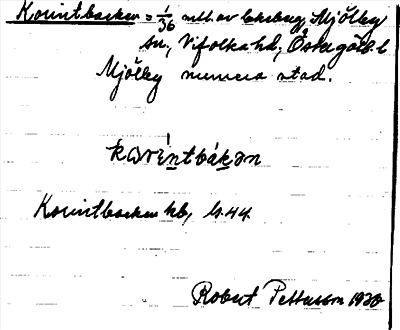 Korintbacken = 1/36 mtl. av Lekeberg, Mjölby
sn, Vifolka hd, Östergötl. l
Mjölby numera stad.
kɷrintbákən
Korintbacken hb, bl. 44
Robert Pettersson 1930